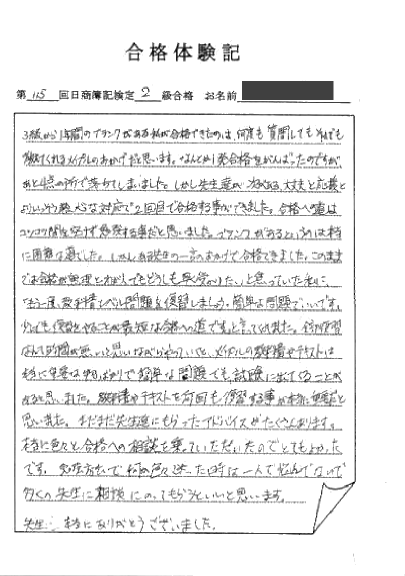 合格体験記
第 115 回日商簿記検定 2 級合格 お名前
3級から1年間のブランクがある私が合格できたのは、何度も質問してもそれでも
教えてくれる のおかげだと思います。なんとか1発合格をがんばったのですが
あと4点の所で落ちてしまいました。しかし先生達が 大丈夫と応援と
対応で2回目で合格する事ができました。合格への道は
コツコツ 努力する事だと思いました。ブランクがあるというのは本当
に困難な道でした。しかしある先生の一言のおかげで合格できました。このまま
では合格が無理とわかんでもどうしても早く受かりたいと思っていた私に、
「もう一度、教科書レベル問題を復習しましょう。簡単な問題でいいです。
少しでも復習をやることが最短な合格への道です。」と言ってくれました。
なんて時間が無いと思いながらやっていると、 教科書やテキストは
本当に重要な事ばかりで簡単な問題でも試験に出てくることが
あると思いました。教科書やテキストを何回も復習する事が本当に重要だと
思いました。まだまだ先生達にもらったアドバイスがたくさんあります。
本当に色々と合格への相談を乗っていただいたのでとてもよかった
です。勉強方法で 色々迷った時は一人で悩んでないで
多くの先生に相談にのってもらうといいと思います。
先生 本当にありがとうございました。